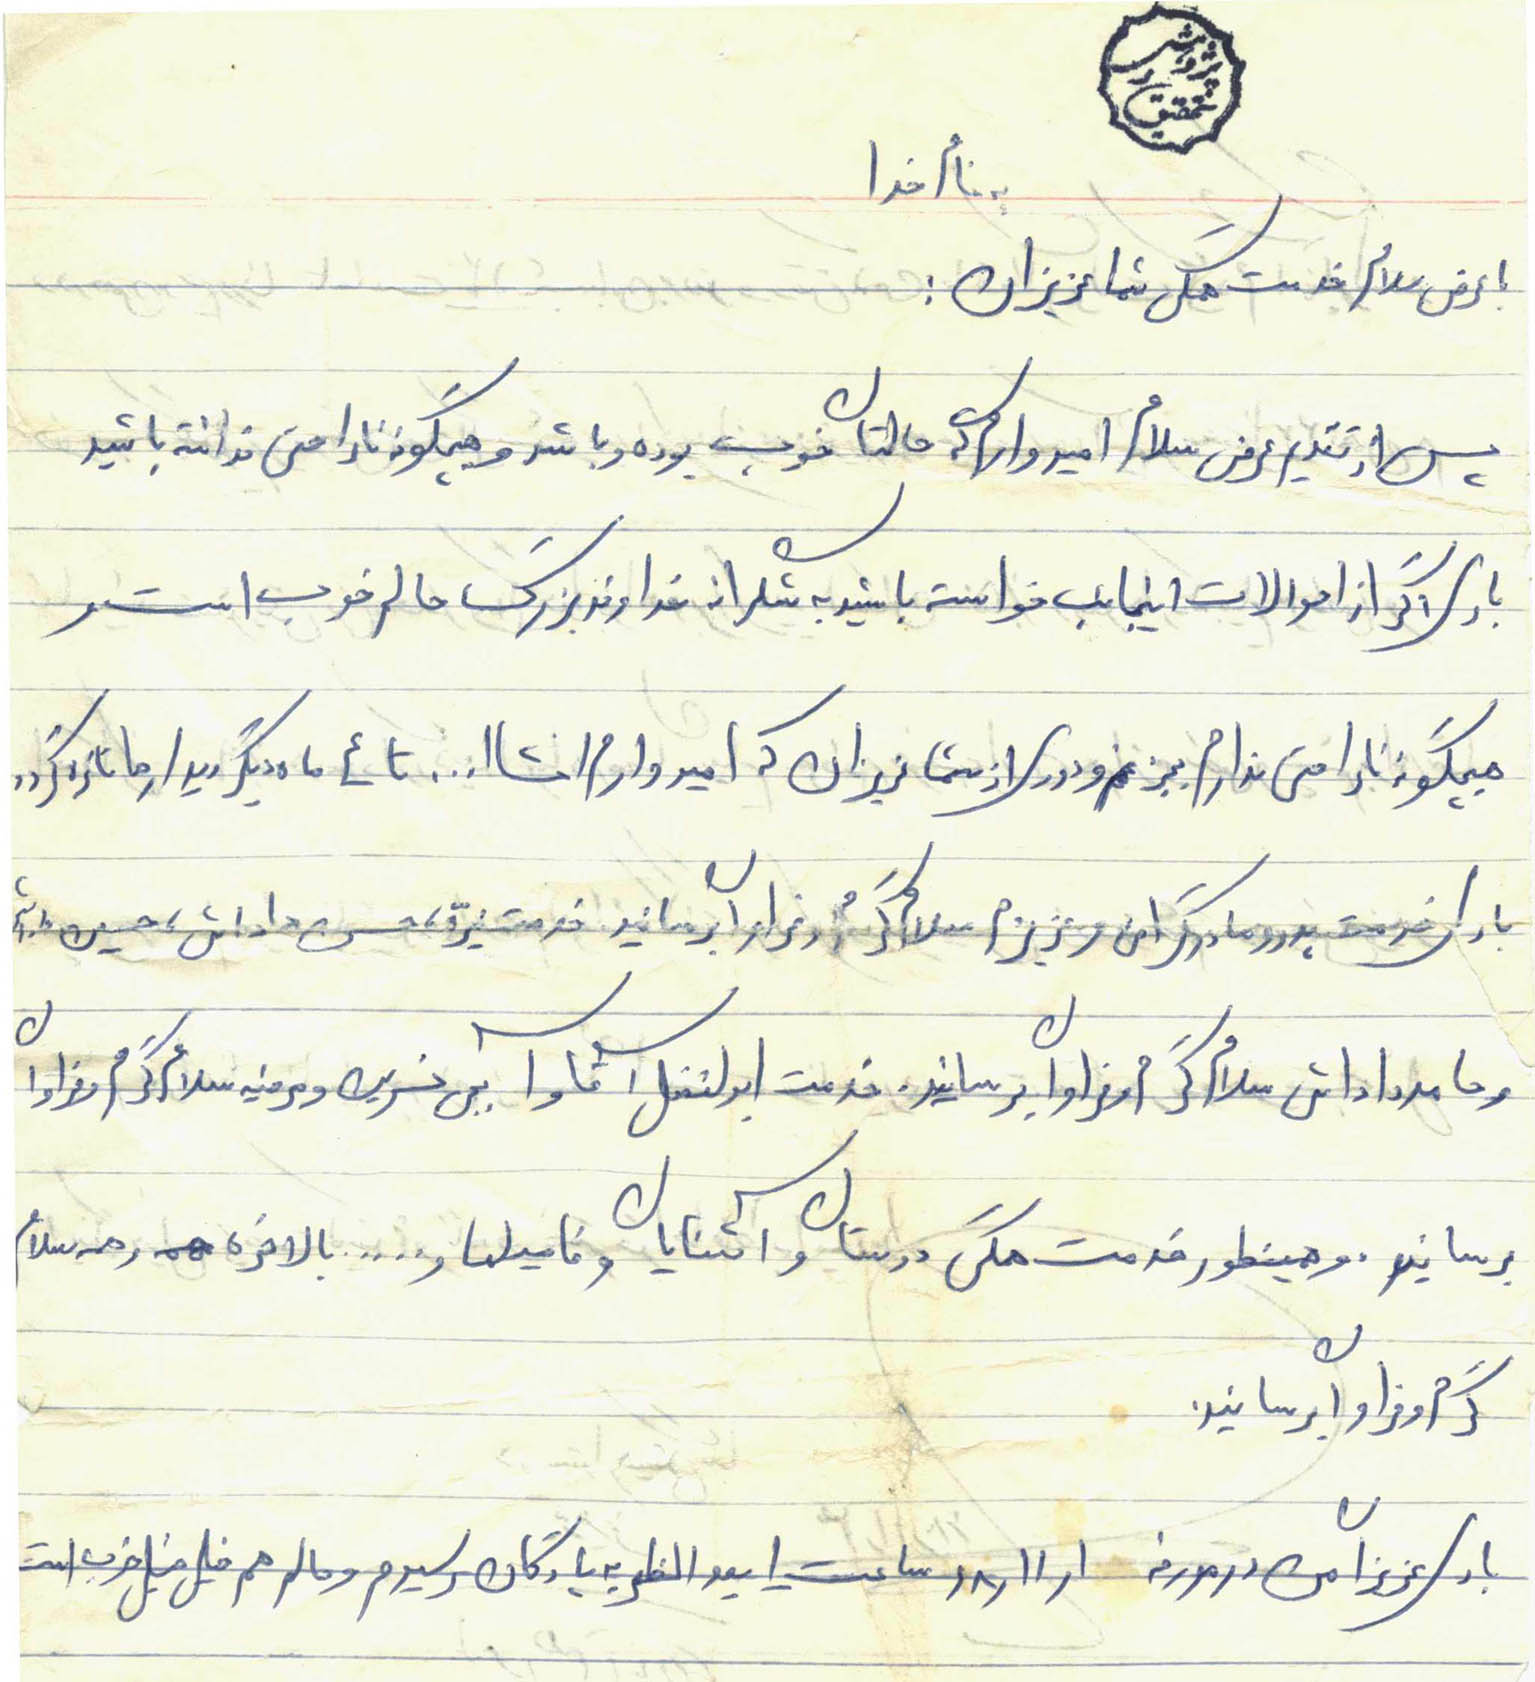 پژوهش و
تحقیق
به نام خدا
با عرض سلام خدمت همگی شما عزیزان :
پس از تقدیم عرض سلام امیدوارم که حالتان خوب بوده و باشد و هیچگونه ناراحتی نداشته باشید
باری اگر از احوالات اینجانب خواسته باشید به شکرانه خداوند بزرگ حالم خوب است و
هیچگونه ناراحتی ندارم بجز غم و دوری از شما عزیزان که امیدوارم انشاا... تا ۴ ماه دیگر دیدارها تازه گردد
باری خدمت پدر و مادر گرامی و عزیزم سلام گرم و فراوان برسانید. خدمت حسن داداش ، حسین داداش
و حامد داداش سلام گرم و فراوان برسانید. خدمت ابولفضل آقا و آبجی نسرین و مرضیه سلام گرم و فراوان
برسانید . و همینطور خدمت همگی دوستان و آشنایان و فامیلها و .... بالاخره همه و همه سلام
گرم و فراوان برسانید.
باری عزیزان من در مورخه ساعت ۱ بعد الظهر به پادگان رسیدم و حالم هم خیلی خیلی خوب است